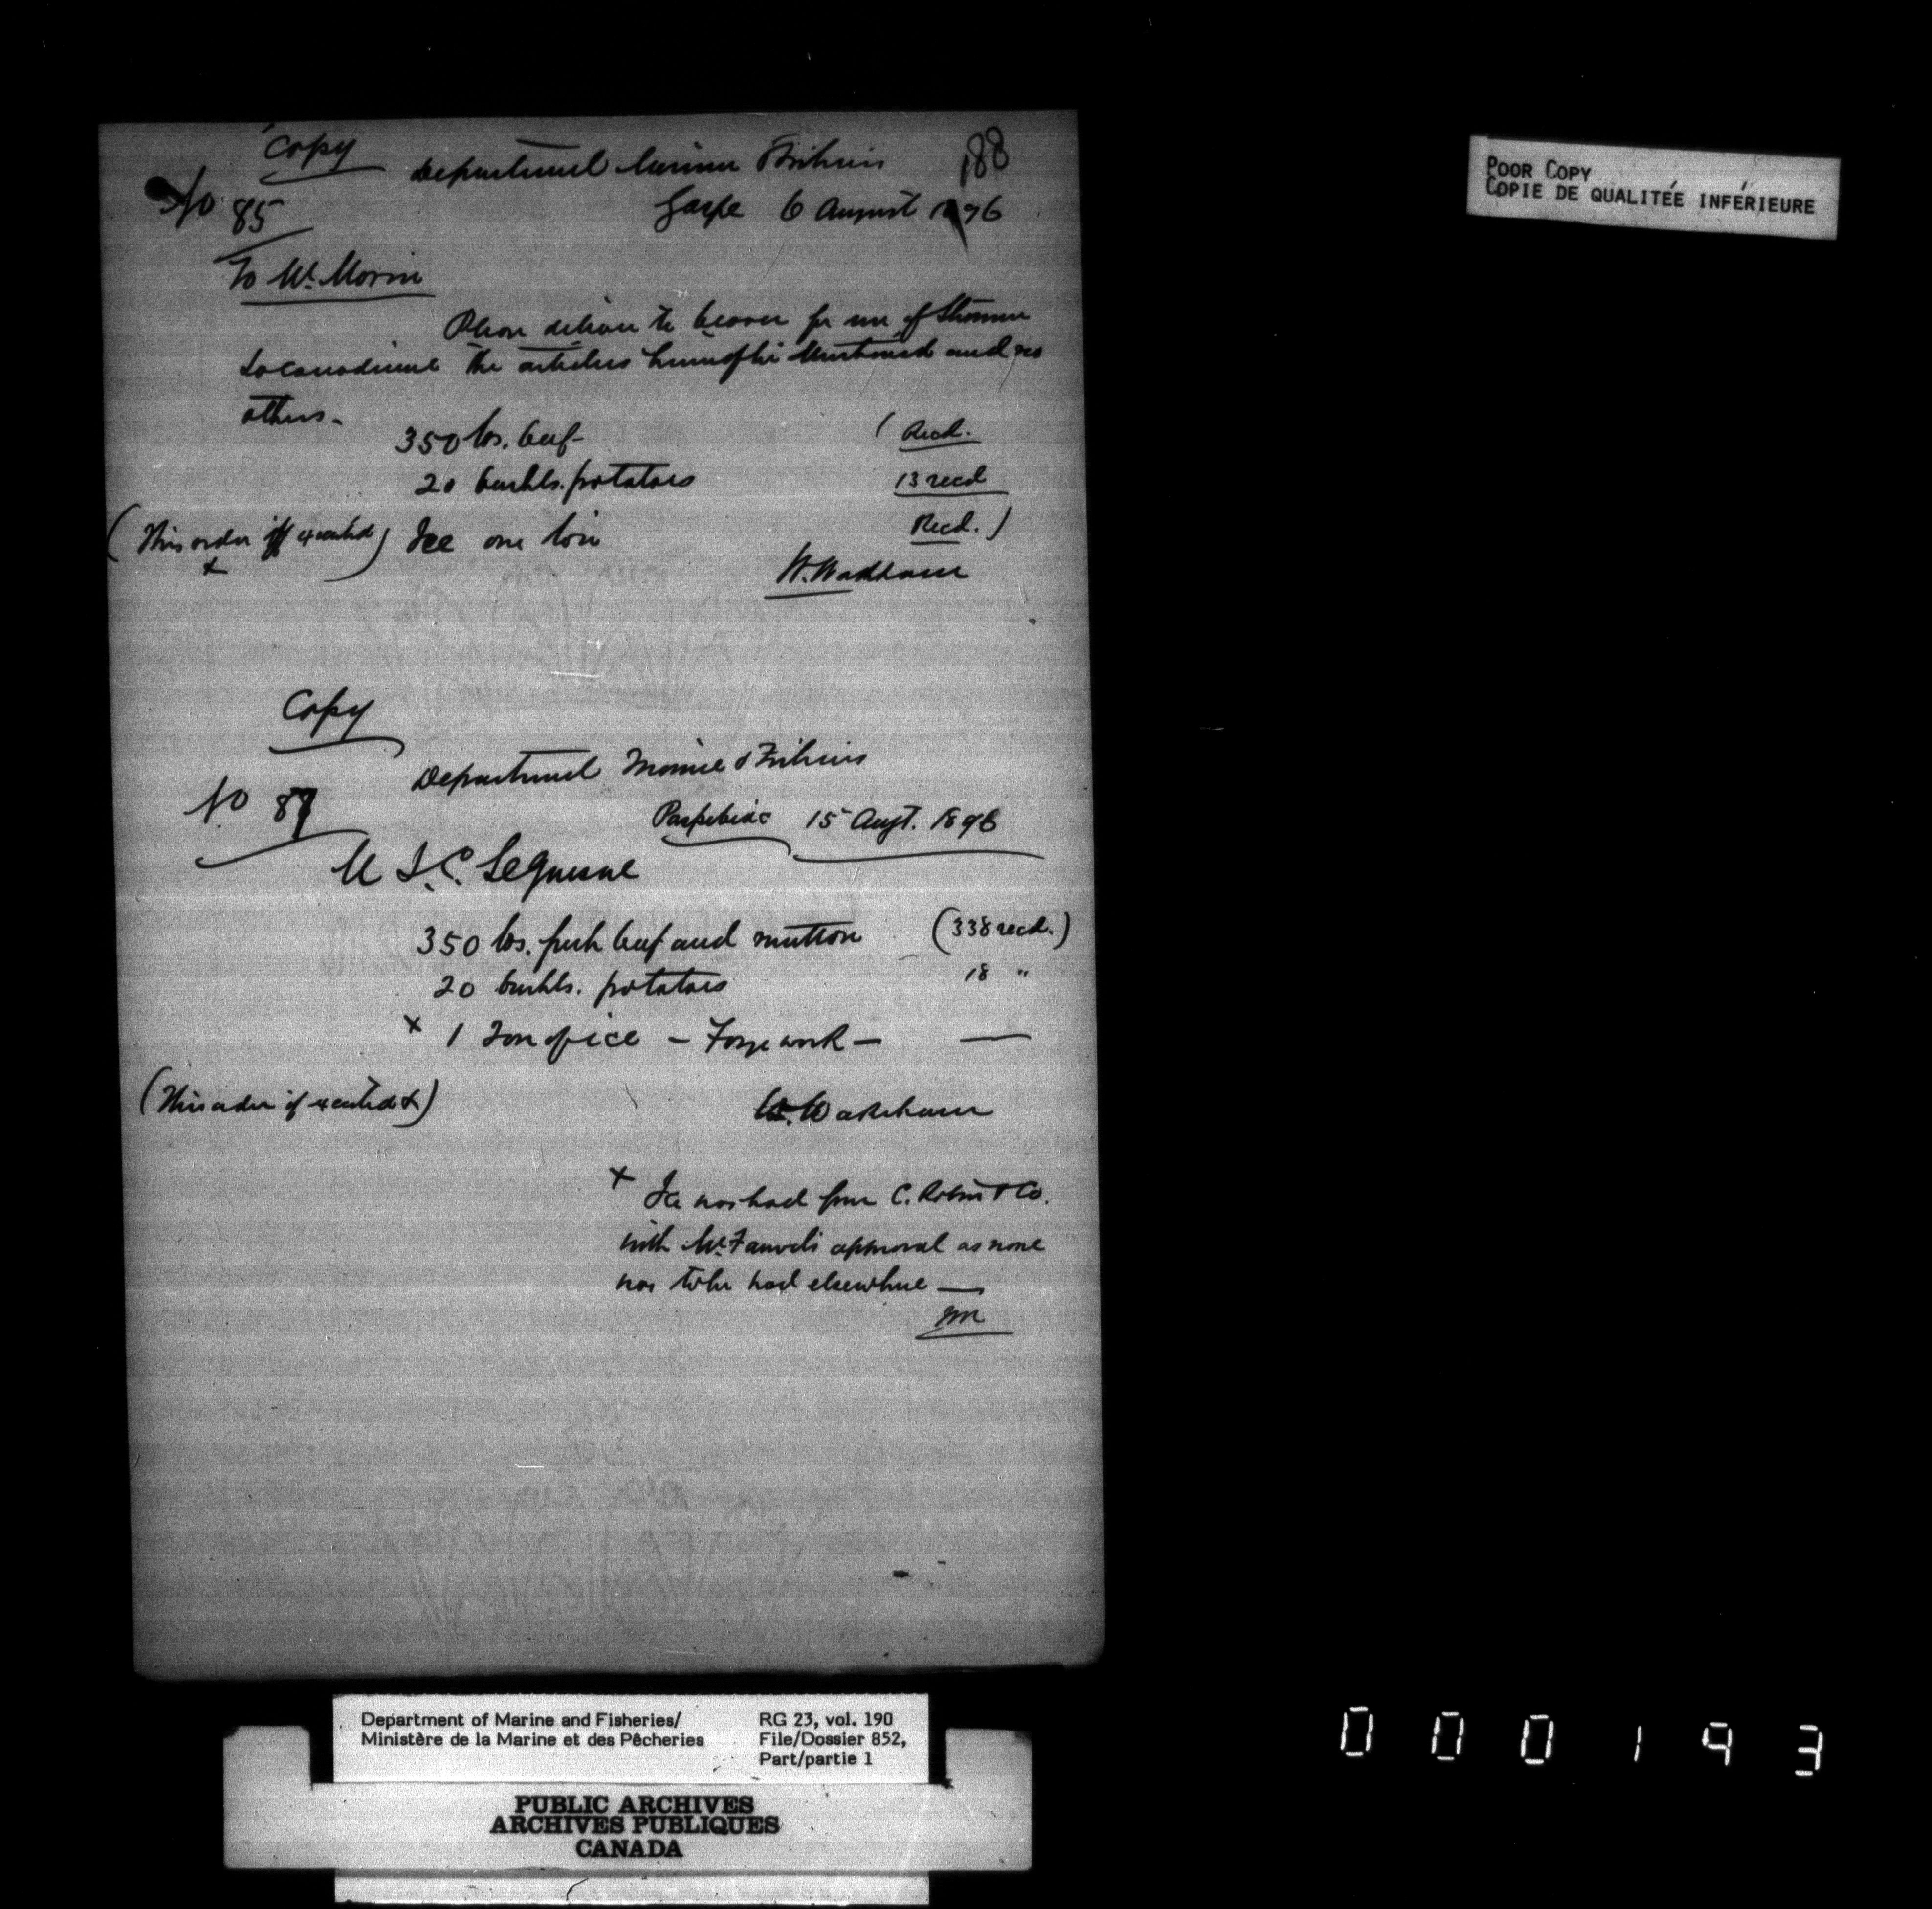 Copy
188
Department Marine & Fisheries
No 85
Gaspe 6 August 1896
To Mr. Morin
Please deliver to bearer for use of Steamer
La Canadienne the articles hereafter mentioned and no
others.
350 lbs. beef (Recd.
20 bushls. potatoes 13 recd
(This order if executed) Ice one ton Recd.)
x
W. Wakeham
Copy
Department Marine & Fisheries
No 87
Paspebiac 15 Augt. 1896
M J.C. LeQuesne
350 lbs. fresh beef and mutton (338 recd.)
20 bushls. potatoes 18 "
x 1 Ton of ice - Forge work - —
(This order if executed x)
W. Wakeham
x Ice was had from C. Robin & Co.
with Mr. Fauvel's approval as none
was to be had elsewhere —
POOR COPY
COPIE DE QUALITÉE INFÉRIEURE
Department of Marine and Fisheries/
Ministère de la Marine et des Pêcheries
RG 23, vol. 190
File/Dossier 852,
Part/partie 1
PUBLIC ARCHIVES
ARCHIVES PUBLIQUES
CANADA
000193